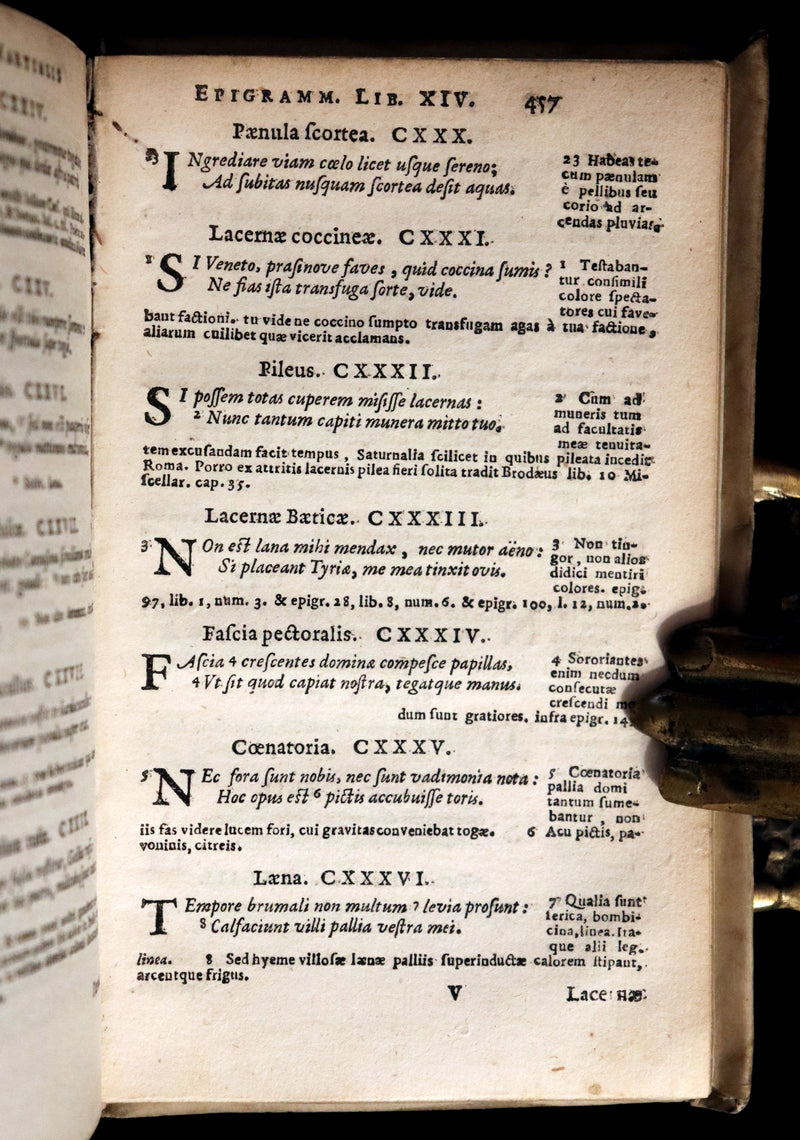 EPIGRAMM. LIB. XIV. 457
Pænula ſcortea. CXXX.
23 INgrediare viam cœlo licet uſque ſereno;
Ad ſubitas nuſquam ſcortea deſit aquas.
23 Habeas te-
cum pænulam
è pellibus ſeu
corio ad ar-
cendas pluvias.
Lacernæ coccineæ. CXXXI.
1 SI Veneto, praſinove faves, quid coccina ſumis?
Ne fias iſta transfuga ſorte, vide.
1 Teſtaban-
tur conſimili
colore ſpecta-
tores cui fave-
bant factioni. tu vide ne coccino ſumpto transfugam agas à tua factione,
aliarum cuilibet quæ vicerit acclamans.
Pileus. CXXXII.
SI poſſem totas cuperem miſiſſe lacernas:
2 Nunc tantum capiti munera mitto tuo.
2 Cum ad
muneris tum
ad facultatis
meæ tenuita-
tem excuſandam facit tempus, Saturnalia ſcilicet in quibus pileata incedit
Roma. Porro ex attritis lacernis pilea fieri ſolita tradit Brodæus lib. 10 Mi-
ſcellar. cap. 35.
Lacernæ Bæticæ. CXXXIII.
3 NOn eſt lana mihi mendax, nec mutor aëno:
Si placeant Tyriæ, me mea tinxit ovis.
3 Non tin-
gor, non alios
didici mentiri
colores. epig.
97, lib. 1, num. 3. & epigr. 28, lib. 8, num. 6. & epigr. 100, l. 12, num. 2.
Faſcia pectoralis. CXXXIV.
FAſcia 4 creſcentes dominæ compeſce papillas,
4 Vt ſit quod capiat noſtra, tegatque manus.
4 Sororiantes
enim necdum
conſecutæ
creſcendi mo
dum ſunt gratiores. infra epigr. 149
Cœnatoria. CXXXV.
5 NEc fora ſunt nobis, nec ſunt vadimonia nota:
Hoc opus eſt 6 pictis accubuiſſe toris.
5 Cœnatoria
pallia domi
tantum ſume-
bantur, non
iis fas videre lucem fori, cui gravitas conveniebat togæ. 6 Acu pictis, pa-
voninis, citreis.
Læna. CXXXVI.
TEmpore brumali non multum 7 levia proſunt:
8 Calfaciunt villi pallia veſtra mei.
7 Qualia ſunt
ſerica, bombi-
cina, linea. Ita-
que alii leg.
linea. 8 Sed hyeme villoſæ lænæ palliis ſuperinductæ calorem ſtipant,
arcentque frigus.
V Lacernæ